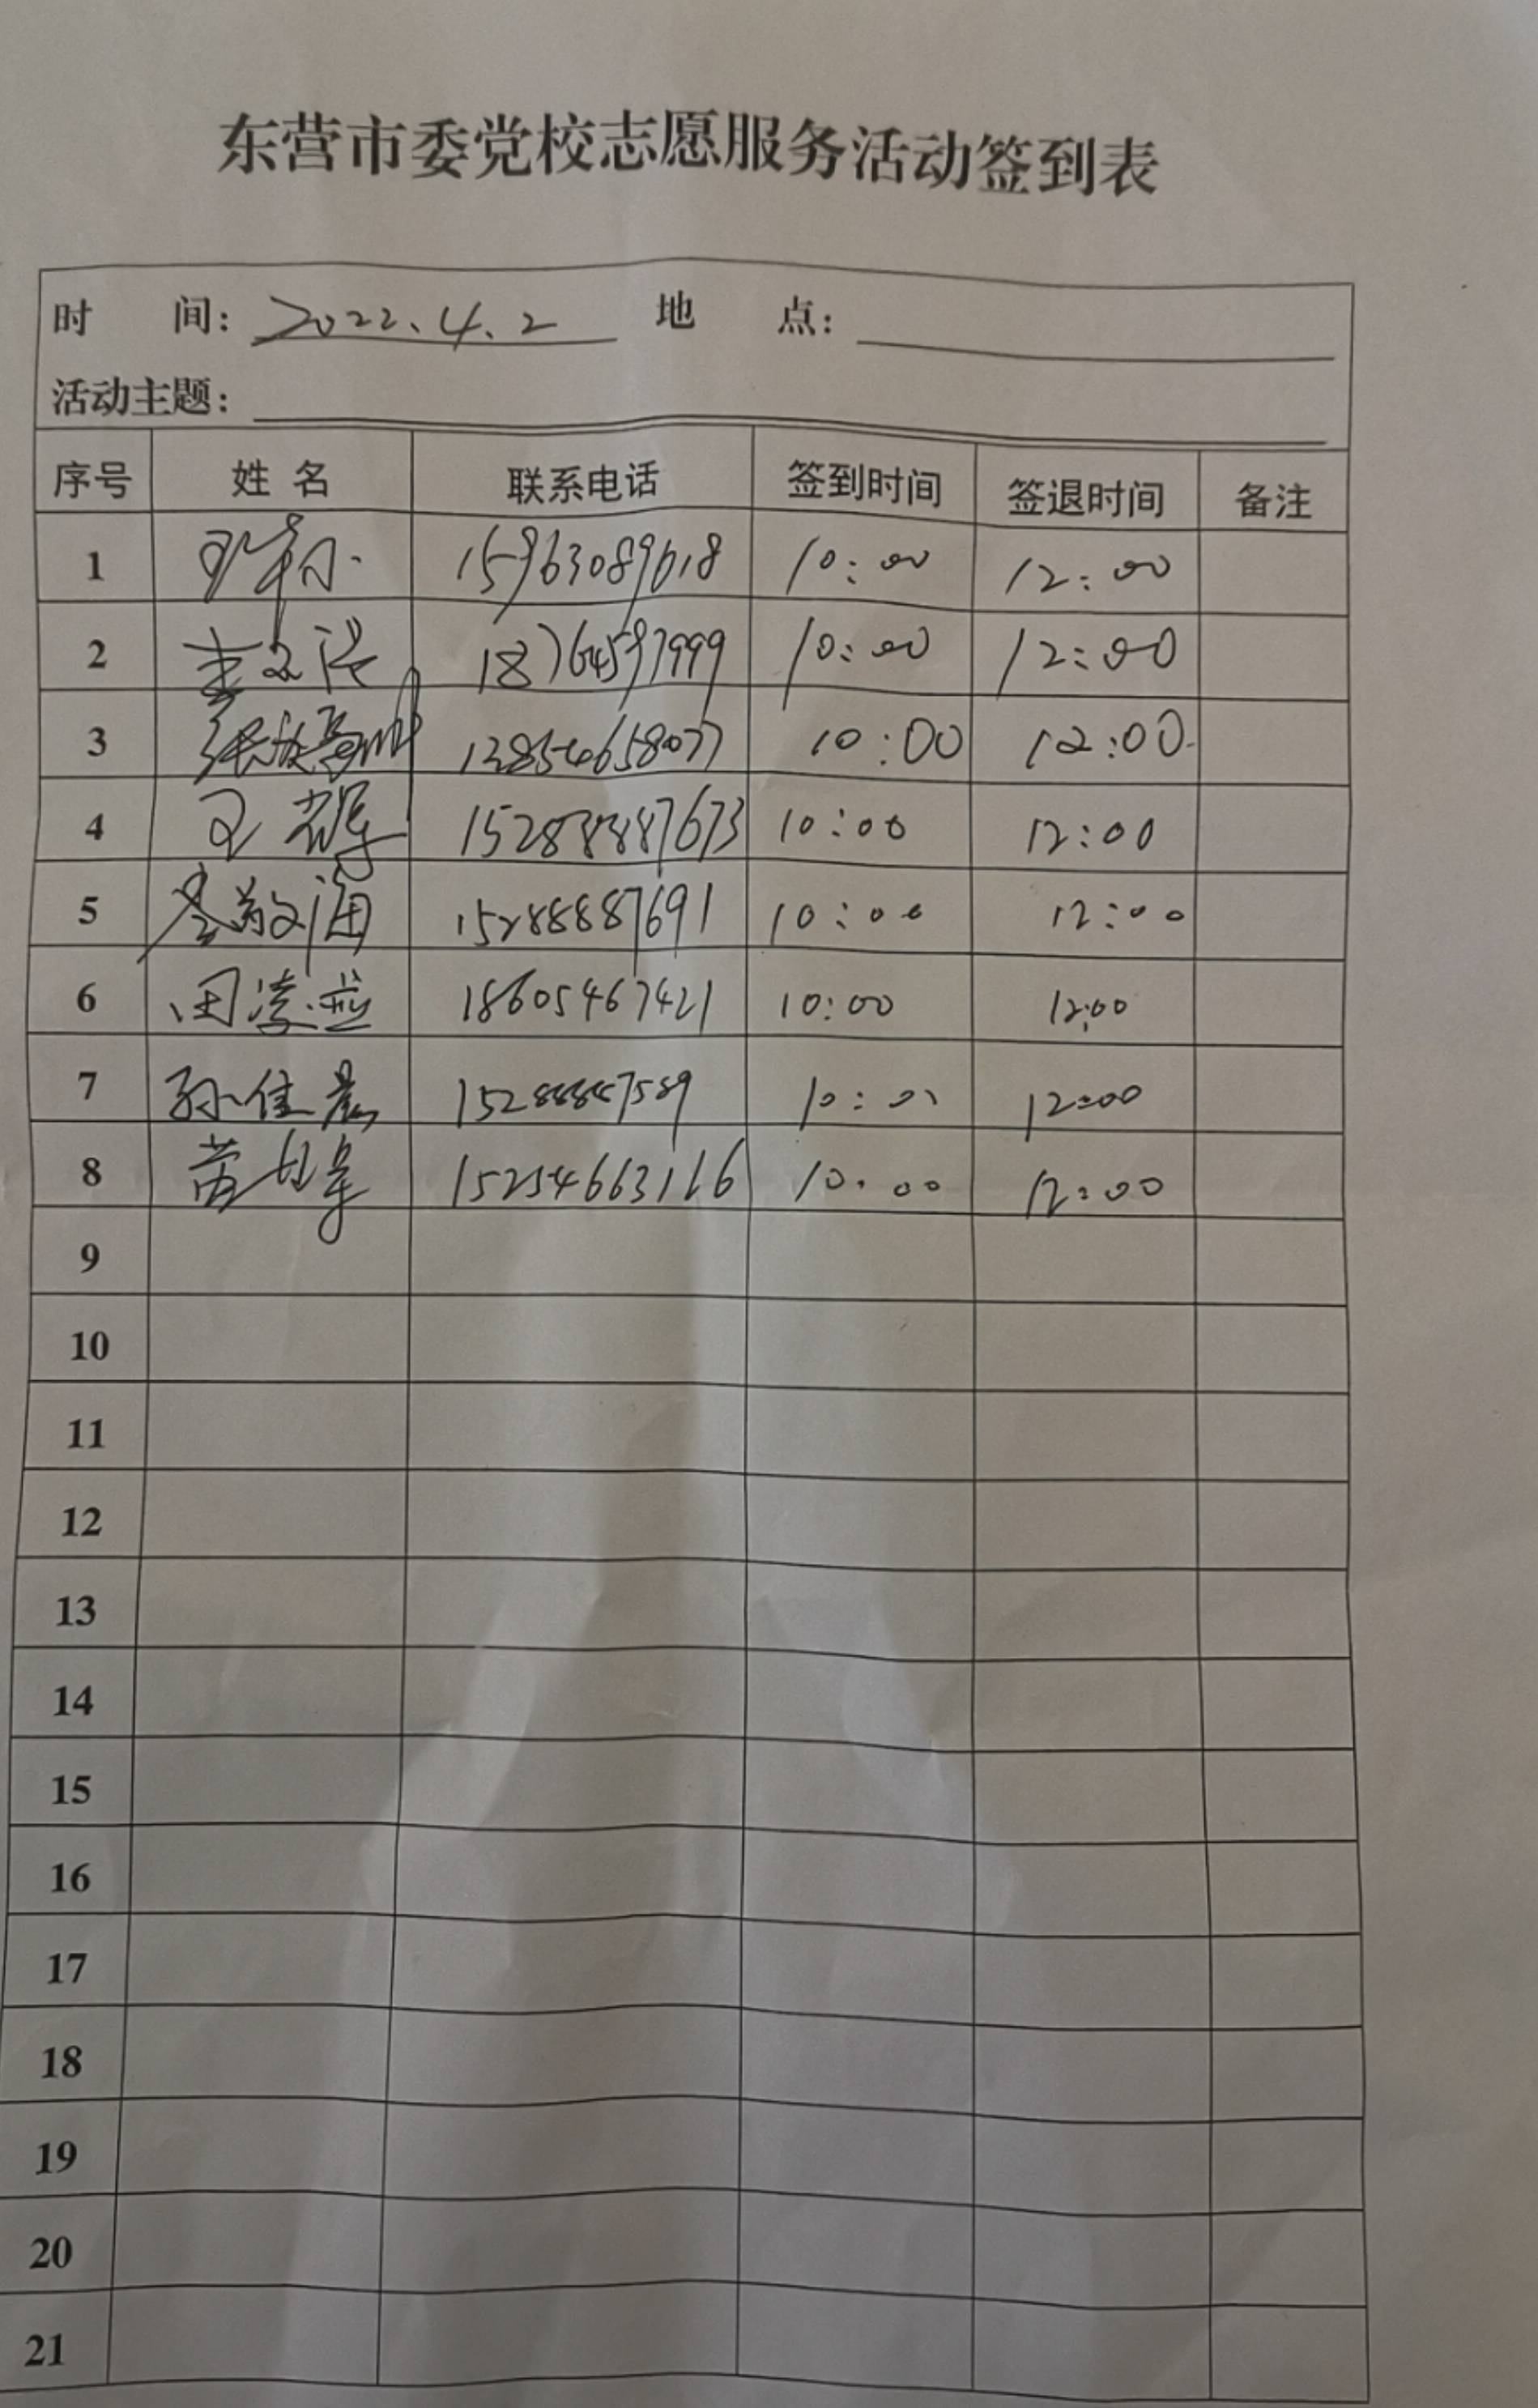 东营市委党校志愿服务活动签到表
时 间: 2022.4.2 地 点:
活动主题:
序号 姓 名 联系电话 签到时间 签退时间 备注
1 15963089618 10:00 12:00
2 18764597999 10:00 12:00
3 10:00 12:00
4 15288887673 10:00 12:00
5 15288887691 10:00 12:00
6 18605467421 10:00 12:00
7 孙佳 15288887589 12:00
8 15254663116 10:00 12:00
9
10
11
12
13
14
15
16
17
18
19
20
21